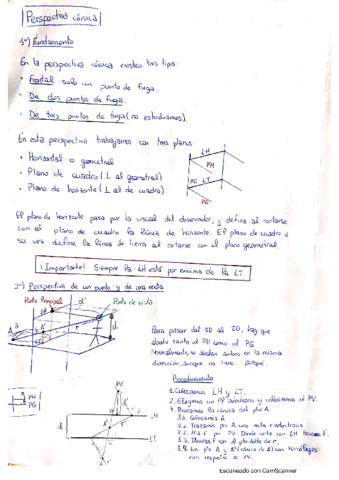 Perspectiva cónica
1º) Fundamento
En la perspectiva cónica existen tres tipos:
• Frontal solo un punto de fuga.
• De dos puntos de fuga.
• De tres puntos de fuga (no estudiamos).
En esta perspectiva trabajamos con tres planos
• Horizontal o geometral
• Plano de cuadro (⊥ al geometral)
• Plano de horizonte (⊥ al de cuadro)
LH
PH
PC LT
PG
El plano de horizonte pasa por la visual del observador, y define al cortarse
con el plano de cuadro la línea de horizonte. El plano de cuadro a
su vez define la línea de tierra al cortarse con el plano geometral.
¡Importante! Siempre la LH está por encima de la LT.
2º) Perspectiva de un punto y de una recta
Punto Principal
d'
Punto de vista
Para pasar del 3D al 2D, hay que
abatir tanto el PH como el PG
Normalmente, se abaten ambos en la misma
dirección, aunque no tiene porque.
Procedimiento
1. Colocamos LH y LT.
2. Elegimos un PP arbitrario y colocamos el PV.
3. Buscamos la cónica del pto A
3.1. Colocamos A
3.2. Trazamos por A una recta cualquiera
PH
PG
PV
LH
LT
3.4. En pto A y A' (cónica de A) son homólogos
con respecto a PV.
Escaneado con CamScanner